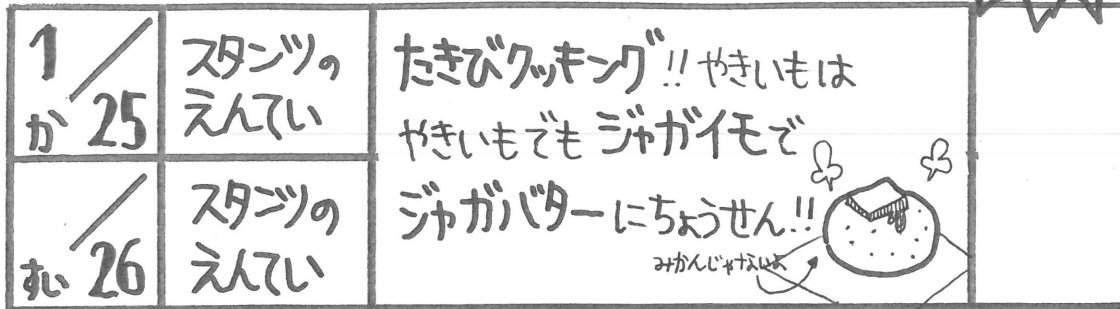 1/25
か
スタンツの
えんてい
たきびクッキング!! やきいもは
やきいもでも ジャガイモで
ジャガバターにちょうせん!!
みかんじゃないよ
/26
すい
スタンツの
えんてい